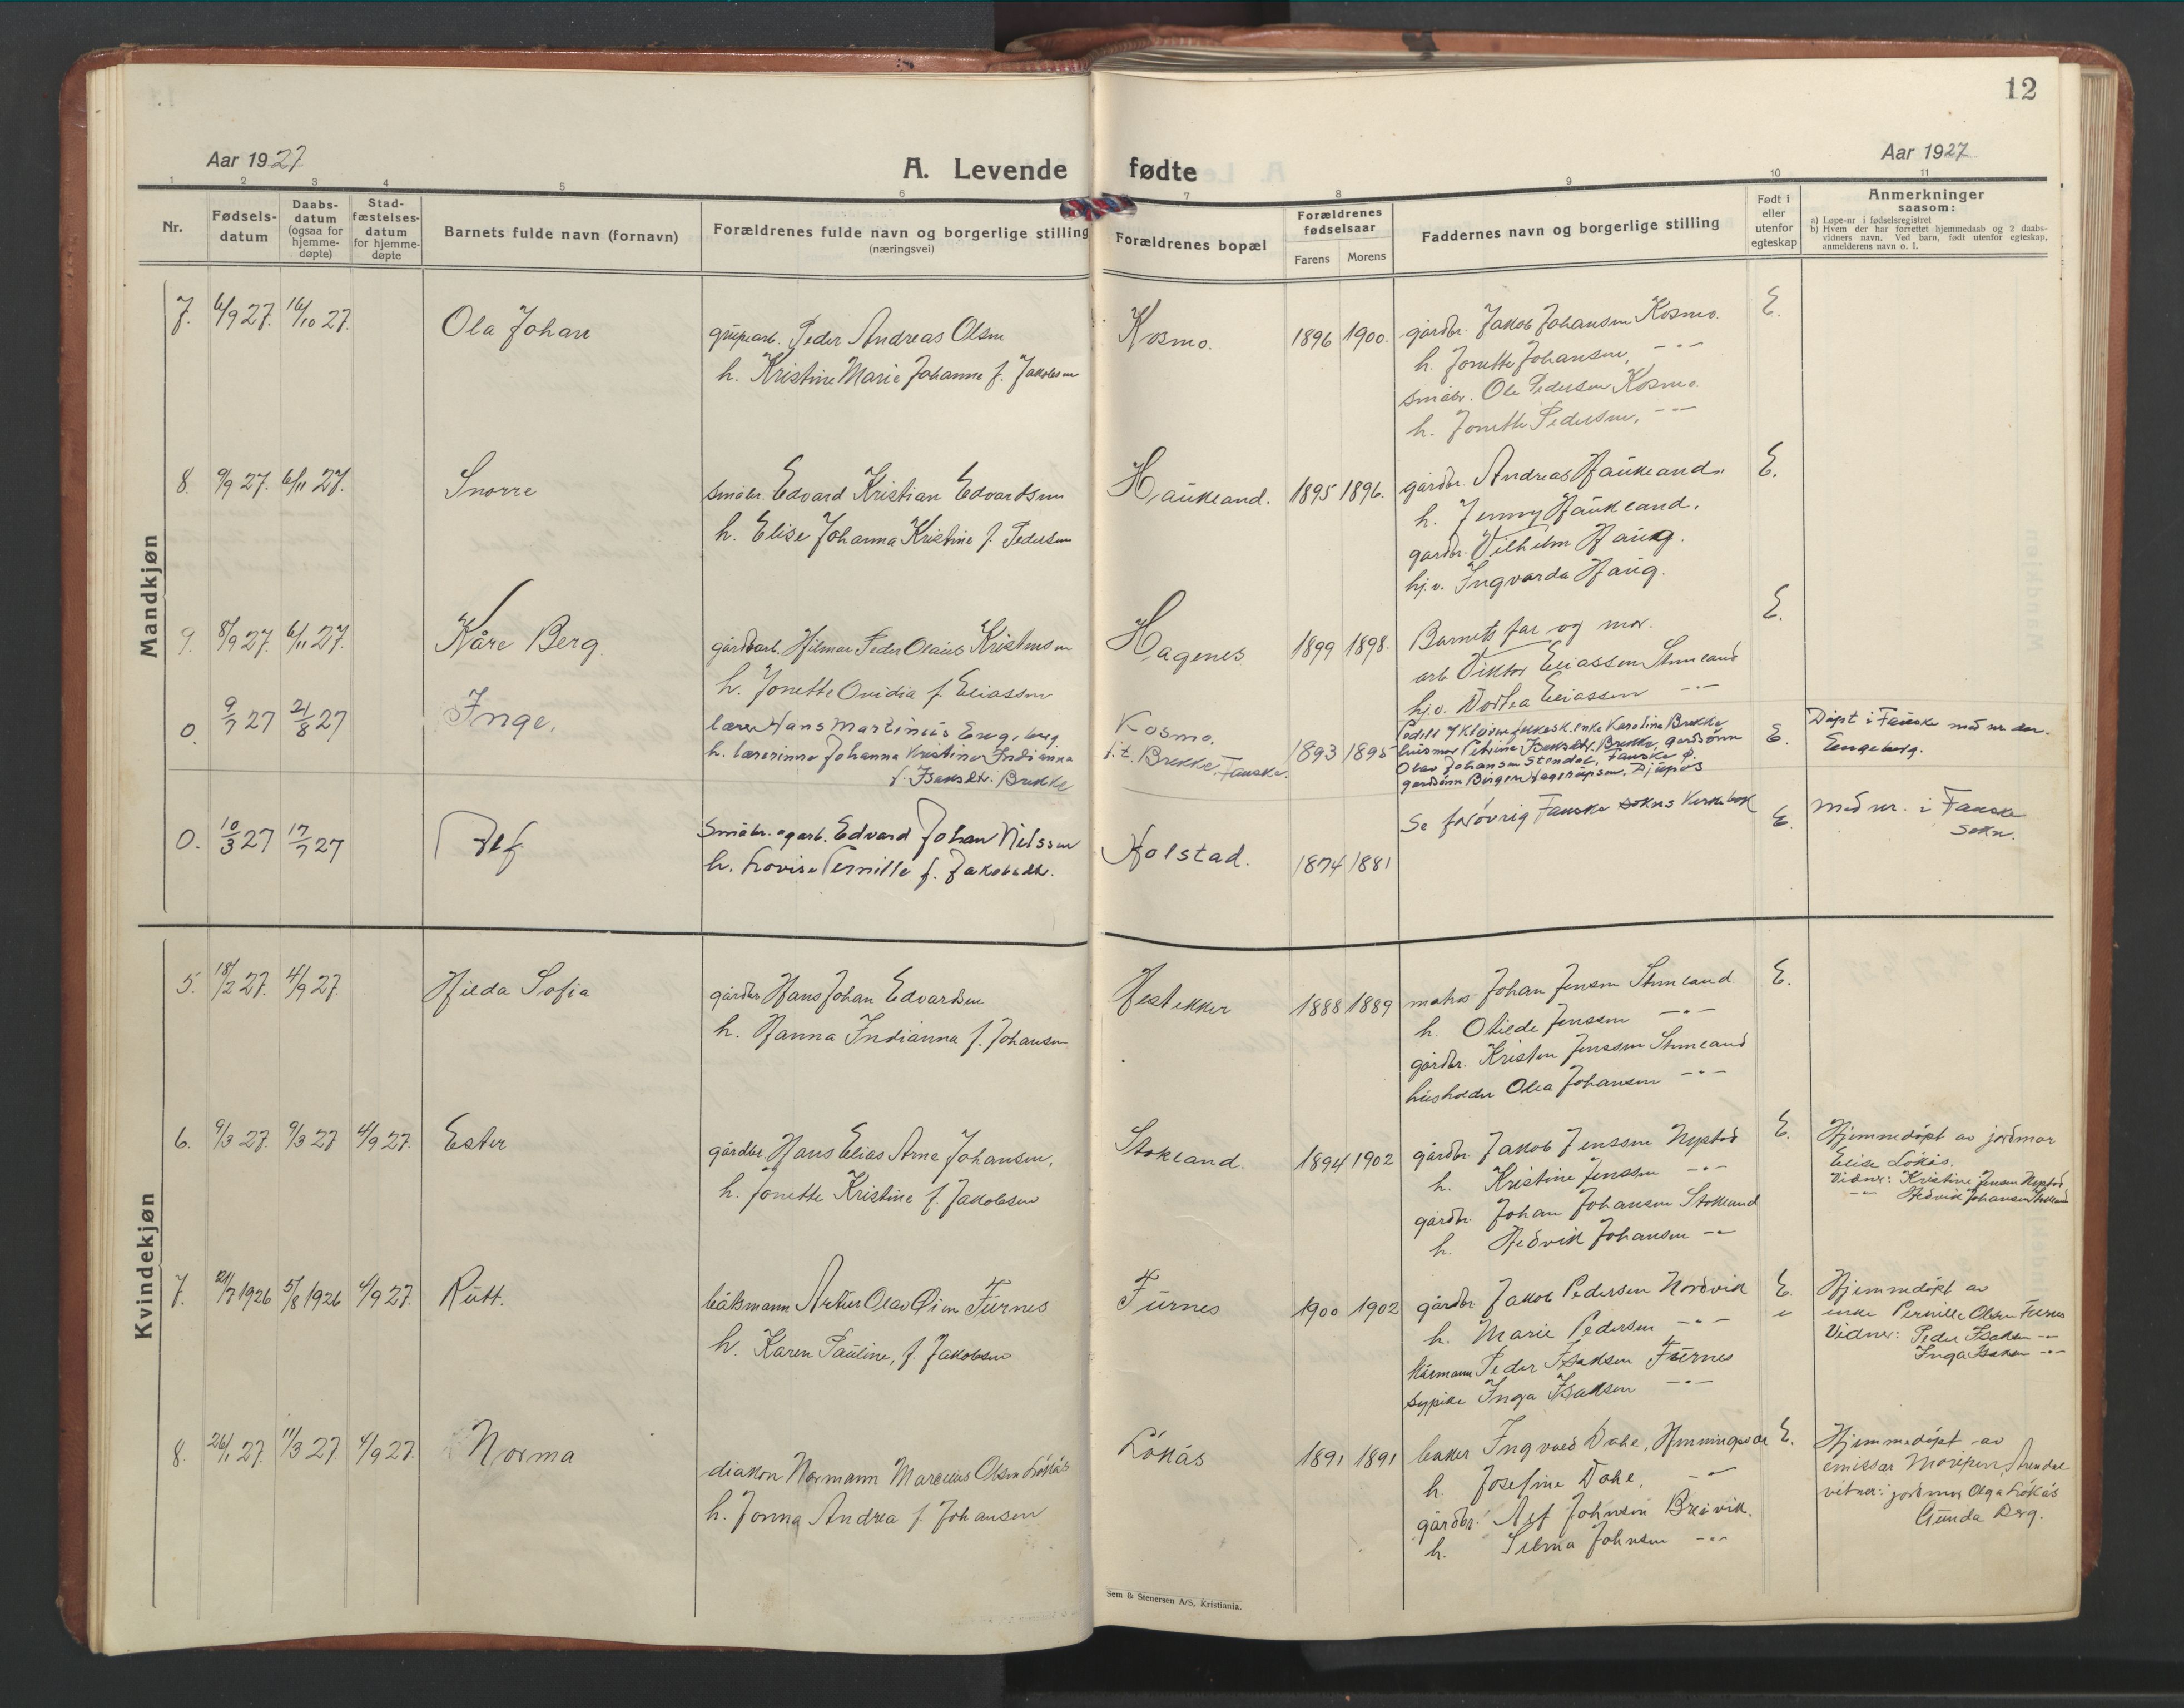 12
Aar 1927
A. Levende fødte
Aar 1927
1 2 3 4 5 6 7 8 9 10 11
Nr.
Fødsels-
datum
Daabs-
datum
(ogsaa for
hjemme-
døpte)
Stad-
fæstelses-
datum
for hjemme-
døpte
Barnets fulde navn (fornavn)
Forældrenes fulde navn og borgerlige stilling
(næringsvei)
Forældrenes bopæl
Forældrenes
fødselsaar
Farens Morens
Faddernes navn og borgerlige stilling
Født i
eller
utenfor
egteskap
Anmerkninger
saasom:
a) Løpe-nr i fødselsregistret
b) Hvem der har forrettet hjemmedaab og 2 daabs-
vidners navn. Ved barn, født utenfor egteskap,
anmelderens navn o. l.
Mandkjøn
7. 6/9 27. 16/10 27. Ola Johan
grubearb. Peder Andreas Olsen
h. Kristine Marie Johanne f. Jakobsen
Kosmo. 1896 1900.
gårdbr. Jakob Johansen Kosmo.
h. Jonette Johansen, -"-
småbr. Ole Pedersen Kosmo.
h. Jonette Pedersen, -"-
E.
8. 9/9 27. 6/11 27. Snorre
småbr. Edvard Kristian Edvardsen
h. Elise Johanna Kristine f. Pedersen
Haukland. 1895 1896.
gårdbr. Andreas Haukland.
h. Jenny Haukland.
gardbr. Vilhelm Haug.
hj.v. Ingvarda Haug.
E.
9. 8/9 27. 6/11 27. Kåre Berg.
gårdbarb. Hilmar Peder Olaus Kristensen
h. Jonette Ovidia f. Eliassen
Hagenes. 1899 1898.
Barnets far og mor.
arb Viktor Eliassen Stenland
hj.v. Dortea Eliassen -"-
E.
0. 9/7 27 21/8 27 Inge.
lærer Hans Martinius Engeberg
h. lærerinne Johanna Kristine Indianna
f. Isaksdtr. Brekke
Kosmo.
f.t. Brekke, Fauske. 1893 1895
enke Karoline Brekke
husmor Petrine Isaksdtr. Brekke, gardsønn
Olav Johansen Stendal, Fauske P.
gardsønn Birger Hagerupsen, Djupos
E.
Döpt i Fauske med nr der.
Engeberg.
0. 10/3 27 17/7 27 Alf
Småbr. og arb. Edvard Johan Nilssen
h. Lovise Pernille f. Jakobsdtr.
Holstad. 1874 1881
Se forövrig Fauske sokns Kirkebok
E.
med nr. i Fauske
sokn.
Kvindekjøn
5. 18/2 27. 4/9 27. Hilda Sofia
gårdbr Hans Johan Edvardsen
h. Hanna Indianna f. Johansen
Hestekker 1888 1889
matros Johan Jensen Stenland
h. Otilde Jenssen -"-
gårdbr. Kristen Jenssen Stenland
husholder Olea Johansen -"-
E.
6. 9/3 27. 9/3 27 4/9 27. Ester
gårdbr. Hans Elias Arne Johansen,
h. Jonette Kristine f. Jakobsen
Stokland. 1894 1902
gårdbr. Jakob Jenssen Nystad
h. Kristine Jenssen -"-
gårdbr. Johan Johansen Stokland
h. Hedvik Johansen -"-
E.
Hjemmedöpt av jordmor
Elise Lökås.
Vidner: Kristine Jensen Nystad
-"- Hedvik Johansen Stokland
7. 21/7 1926 5/8 1926 4/9 27. Rutt.
båtsmann Artur Olav Öien Furnes
h. Karen Pauline, f. Jakobsen
Furnes 1900 1902
gårdbr Jakob Pedersen Nordvik
h. Marie Pedersen -"-
kårmann Peder Isaksen Furnes
sypike Inga Isaksen -"-
E.
Hjemmedöpt av
enke Pernille Olsen Furnes
Vidner: Peder Isaksen -"-
Inga Isaksen -"-
8. 26/1 27. 11/3 27. 4/9 27. Norma
diakon Normann Marelius Olsen Lökås
h. Jonna Andrea f. Johansen
Lökås 1891 1891
baker Ingvald Dahl, Henningsvær
h. Josefine Dahl, -"-
gårdbr. Alf Johnsen Breivik.
h. Selma Johnsen -"-
E.
Hjemmedöpt av
emissær
vitner: jordmor Olga Lökås
Gunda Berg.
Sem & Stenersen A/S, Kristiania.